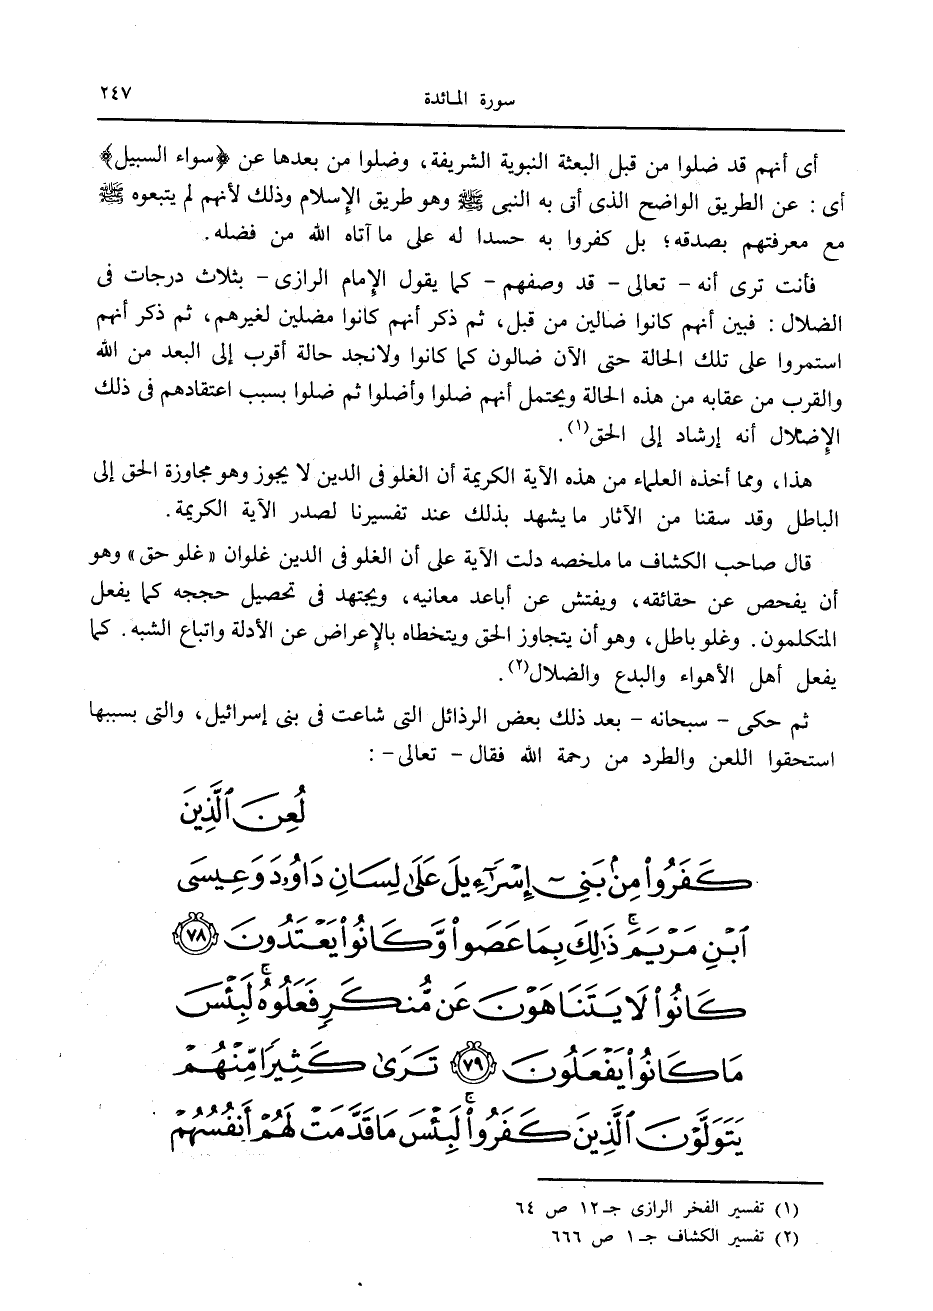 سورة المائدة ٢٤٧
أى أنهم قد ضلوا من قبل البعثة النبوية الشريفة، وضلوا من بعدها عن ﴿سواء السبيل﴾
أى : عن الطريق الواضح الذى أتى به النبى ﷺ وهو طريق الإسلام وذلك لأنهم لم يتبعوه ﷺ
مع معرفتهم بصدقه؛ بل كفروا به حسدا له على ما آتاه الله من فضله.
فأنت ترى أنه - تعالى - قد وصفهم - كما يقول الإمام الرازى - بثلاث درجات فى
الضلال : فبين أنهم كانوا ضالين من قبل، ثم ذكر أنهم كانوا مضلين لغيرهم، ثم ذكر أنهم
استمروا على تلك الحالة حتى الآن ضالون كما كانوا ولانجد حالة أقرب إلى البعد من الله
والقرب من عقابه من هذه الحالة ويحتمل أنهم ضلوا وأضلوا ثم ضلوا بسبب اعتقادهم فى ذلك
الإضلال أنه إرشاد إلى الحق(١).
هذا، ومما أخذه العلماء من هذه الآية الكريمة أن الغلو فى الدين لا يجوز وهو مجاوزة الحق إلى
الباطل وقد سقنا من الآثار ما يشهد بذلك عند تفسيرنا لصدر الآية الكريمة.
قال صاحب الكشاف ما ملخصه دلت الآية على أن الغلو فى الدين غلوان «غلو حق» وهو
أن يفحص عن حقائقه، ويفتش عن أباعد معانيه، ويجتهد فى تحصيل حججه كما يفعل
المتكلمون. وغلو باطل، وهو أن يتجاوز الحق ويتخطاه بالإعراض عن الأدلة واتباع الشبه. كما
يفعل أهل الأهواء والبدع والضلال(٢).
ثم حكى - سبحانه - بعد ذلك بعض الرذائل التى شاعت فى بنى إسرائيل، والتى بسببها
استحقوا اللعن والطرد من رحمة الله فقال - تعالى - :
لُعِنَ ٱلَّذِينَ
كَفَرُوا۟ مِنۢ بَنِىٓ إِسْرَٰٓءِيلَ عَلَىٰ لِسَانِ دَاوُۥدَ وَعِيسَى
ٱبْنِ مَرْيَمَ ۚ ذَٰلِكَ بِمَا عَصَوا۟ وَّكَانُوا۟ يَعْتَدُونَ ٧٨
كَانُوا۟ لَا يَتَنَاهَوْنَ عَن مُّنكَرٍ فَعَلُوهُ ۚ لَبِئْسَ
مَا كَانُوا۟ يَفْعَلُونَ ٧٩ تَرَىٰ كَثِيرًا مِّنْهُمْ
يَتَوَلَّوْنَ ٱلَّذِينَ كَفَرُوا۟ ۚ لَبِئْسَ مَا قَدَّمَتْ لَهُمْ أَنفُسُهُمْ
(١) تفسير الفخر الرازى جـ ١٢ ص ٦٤
(٢) تفسير الكشاف جـ ١ ص ٦٦٦